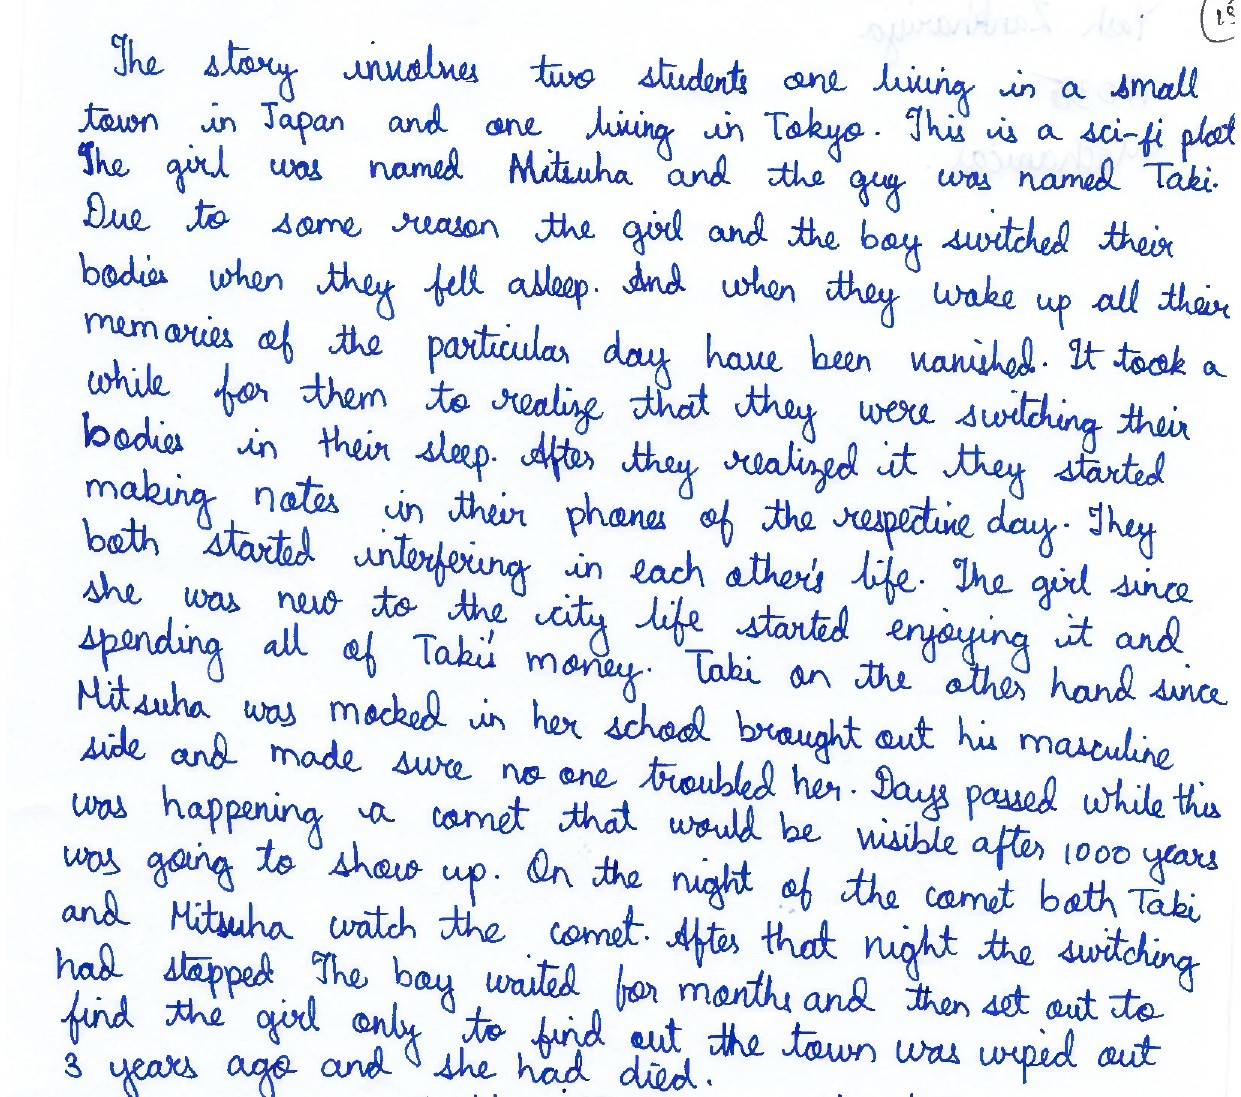 The story involves two students one living in a small
town in Japan and one living in Tokyo. This is a sci-fi plot
The girl was named Mitsuha and the guy was named Taki.
Due to some reason the girl and the boy switched their
bodies when they fell asleep. And when they wake up all their
memories of the particular day have been vanished. It took a
while for them to realize that they were switching their
bodies in their sleep. After they realized it they started
making notes in their phones of the respective day. They
both started interfering in each other's life. The girl since
she was new to the city life started enjoying it and
spending all of Taki's money. Taki on the other hand since
Mitsuha was mocked in her school brought out his masculine
side and made sure no one troubled her. Days passed while this
was happening a comet that would be visible after 1000 years
was going to show up. On the night of the comet both Taki
and Mitsuha watch the comet. After that night the switching
had stopped The boy waited for months and then set out to
find the girl only to find out the town was wiped out
3 years ago and she had died.